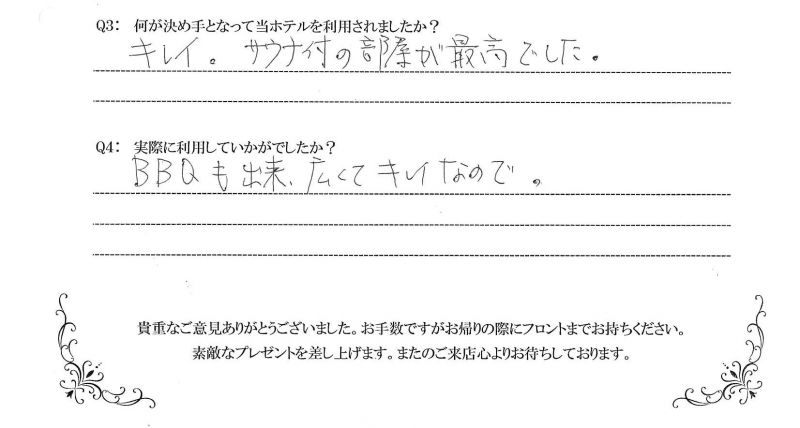 Q3: 何が決め手となって当ホテルを利用されましたか?
キレイ。サウナ付の部屋が最高でした。
Q4: 実際に利用していかがでしたか?
BBQも出来、広くてキレイなので。
貴重なご意見ありがとうございました。お手数ですがお帰りの際にフロントまでお持ちください。
素敵なプレゼントを差し上げます。またのご来店心よりお待ちしております。